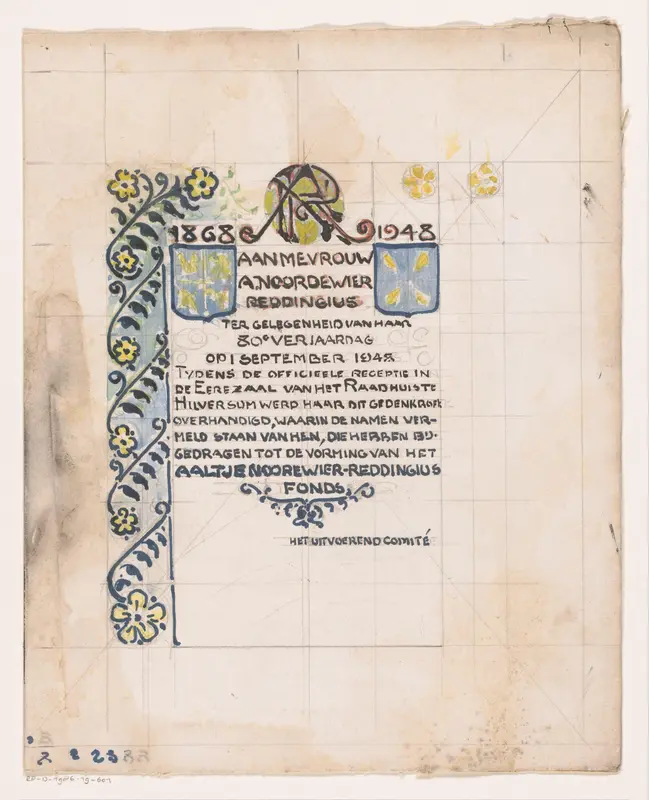 AR
1868 1948
AAN MEVROUW
A. NOORDEWIER
REDDINGIUS
TER GELEGENHEID VAN HAAR
80e VERJAARDAG
OP 1 SEPTEMBER 1948
TYDENS DE OFFICIEELE RECEPTIE IN
DE EEREZAAL VAN HET RAADHUIS TE
HILVERSUM WERD HAAR DIT GEDENKROL
OVERHANDIGD, WAARIN DE NAMEN VER-
MELD STAAN VAN HEN, DIE HEBBEN BIJ-
GEDRAGEN TOT DE VORMING VAN HET
AALTJE NOOREWIER-REDDINGIUS
FONDS.
HET UITVOEREND COMITÉ